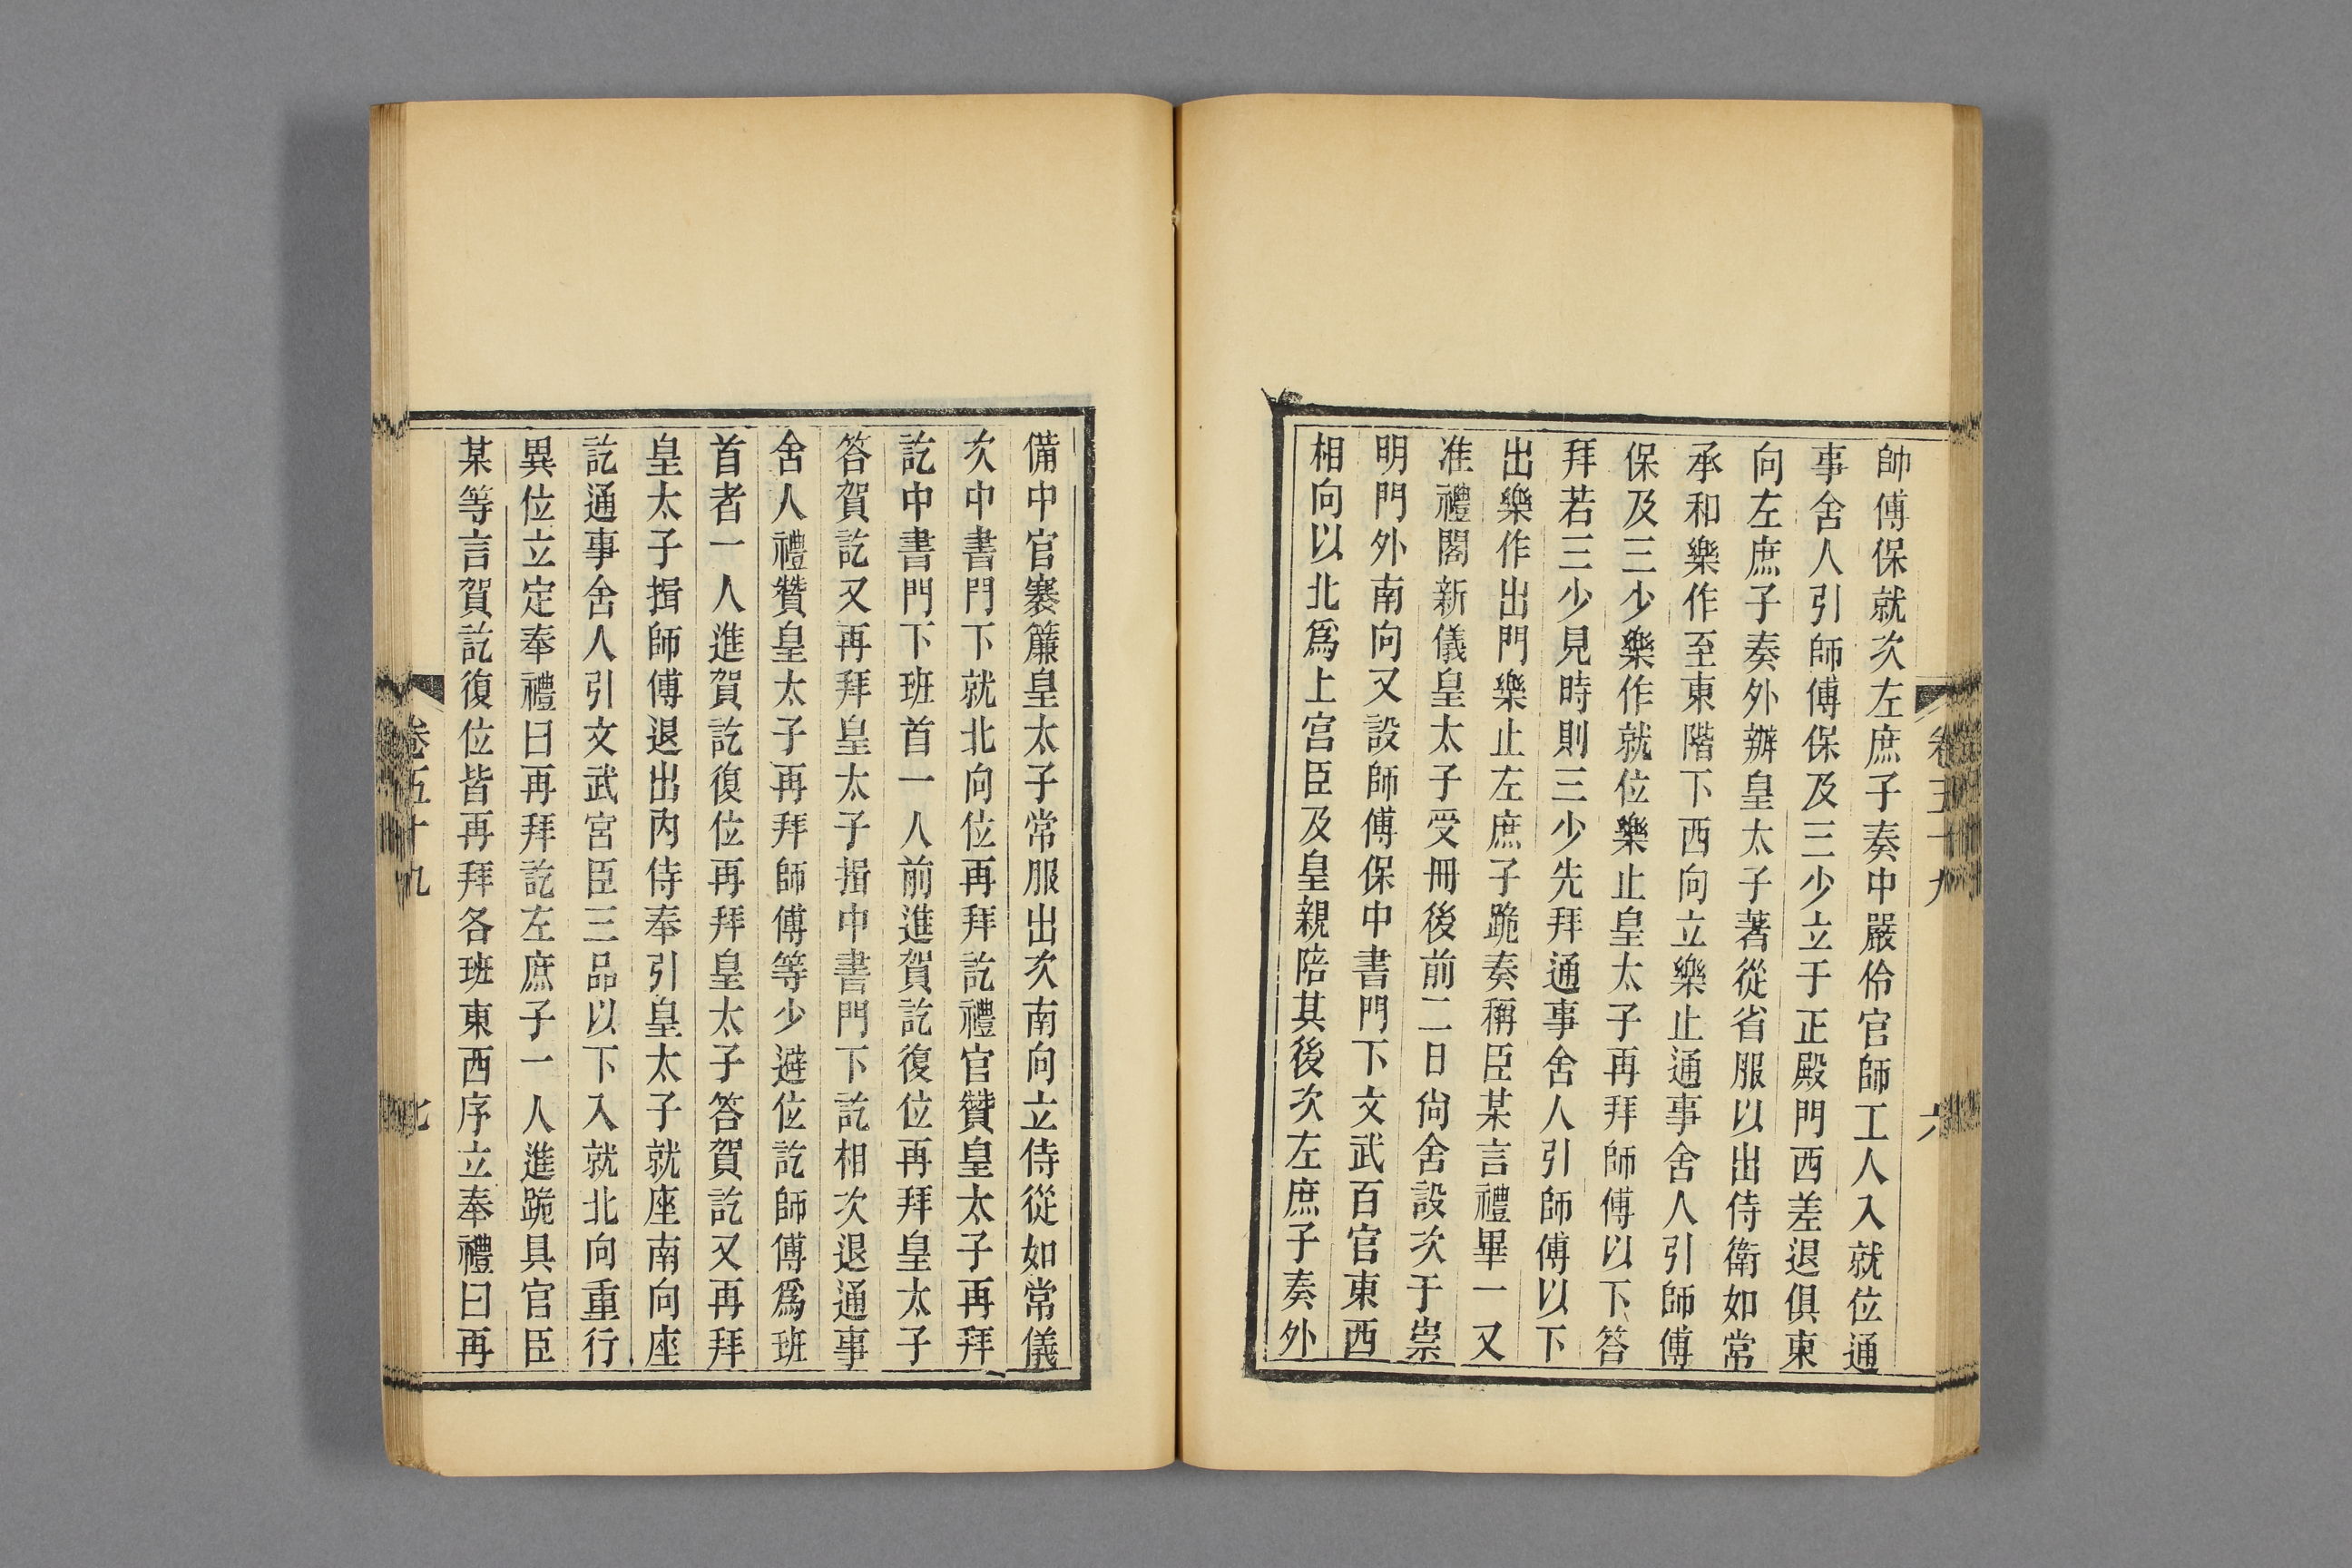 帥傅保就次左庶子奏中嚴伶官師工人入就位通
事舍人引師傅保及三少立于正殿門西差退俱東
向左庶子奏外辦皇太子著從省服以出侍衛如常
承和樂作至東階下西向立樂止通事舍人引師傅
保及三少樂作就位樂止皇太子再拜師傅以下答
拜若三少見時則三少先拜通事舍人引師傅以下
出樂作出門樂止左庶子跪奏稱臣某言禮畢一又
准禮閣新儀皇太子受冊後前二日尙舍設次于崇
明門外南向又設師傅保中書門下文武百官東西
相向以北爲上宮臣及皇親陪其後次左庶子奏外
卷五十九
六
備中官褰簾皇太子常服出次南向立侍從如常儀
次中書門下就北向位再拜訖禮官贊皇太子再拜
訖中書門下班首一人前進賀訖復位再拜皇太子
答賀訖又再拜皇太子揖中書門下訖相次退通事
舍人禮贊皇太子再拜師傅等少避位訖師傅爲班
首者一人進賀訖復位再拜皇太子答賀訖又再拜
皇太子揖師傅退出內侍奉引皇太子就座南向座
訖通事舍人引文武宮臣三品以下入就北向重行
異位立定奉禮曰再拜訖左庶子一人進跪具官臣
某等言賀訖復位皆再拜各班東西序立奉禮曰再
卷五十九
七